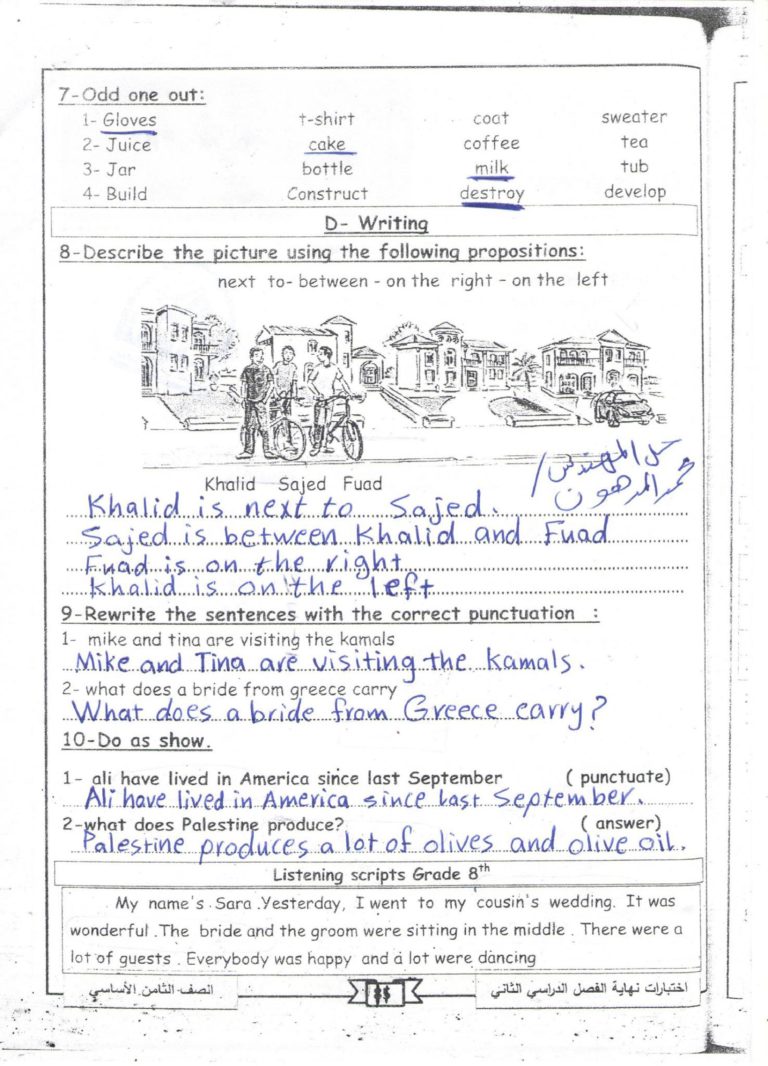 7-Odd one out:
1- Gloves t-shirt coat sweater
2- Juice cake coffee tea
3- Jar bottle milk tub
4- Build Construct destroy develop
D- Writing
8-Describe the picture using the following propositions:
next to- between - on the right - on the left
حل المهندس/
محمد المدهون
Khalid Sajed Fuad
Khalid is next to Sajed.
Sajed is between Khalid and Fuad
Fuad is on the right
Khalid is on the left
9-Rewrite the sentences with the correct punctuation :
1- mike and tina are visiting the kamals
Mike and Tina are visiting the Kamals.
2- what does a bride from greece carry
What does a bride from Greece carry?
10-Do as show.
1- ali have lived in America since last September ( punctuate)
Ali have lived in America since last September.
2-what does Palestine produce? ( answer)
Palestine produces a lot of olives and olive oil.
Listening scripts Grade 8th
My name's Sara .Yesterday, I went to my cousin's wedding. It was
wonderful .The bride and the groom were sitting in the middle . There were a
lot of guests . Everybody was happy and a lot were dancing
اختبارات نهاية الفصل الدراسي الثاني
الصف الثامن الأساسي